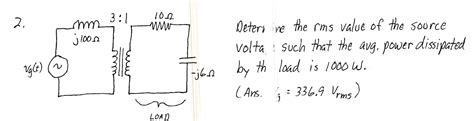 2.
3:1
10Ω
j100Ω
vg(t)
-j6Ω
LOAD
Determ ne the rms value of the source
volta : such that the avg. power dissipated
by th load is 1000 W.
(Ans. = 336.9 Vrms)